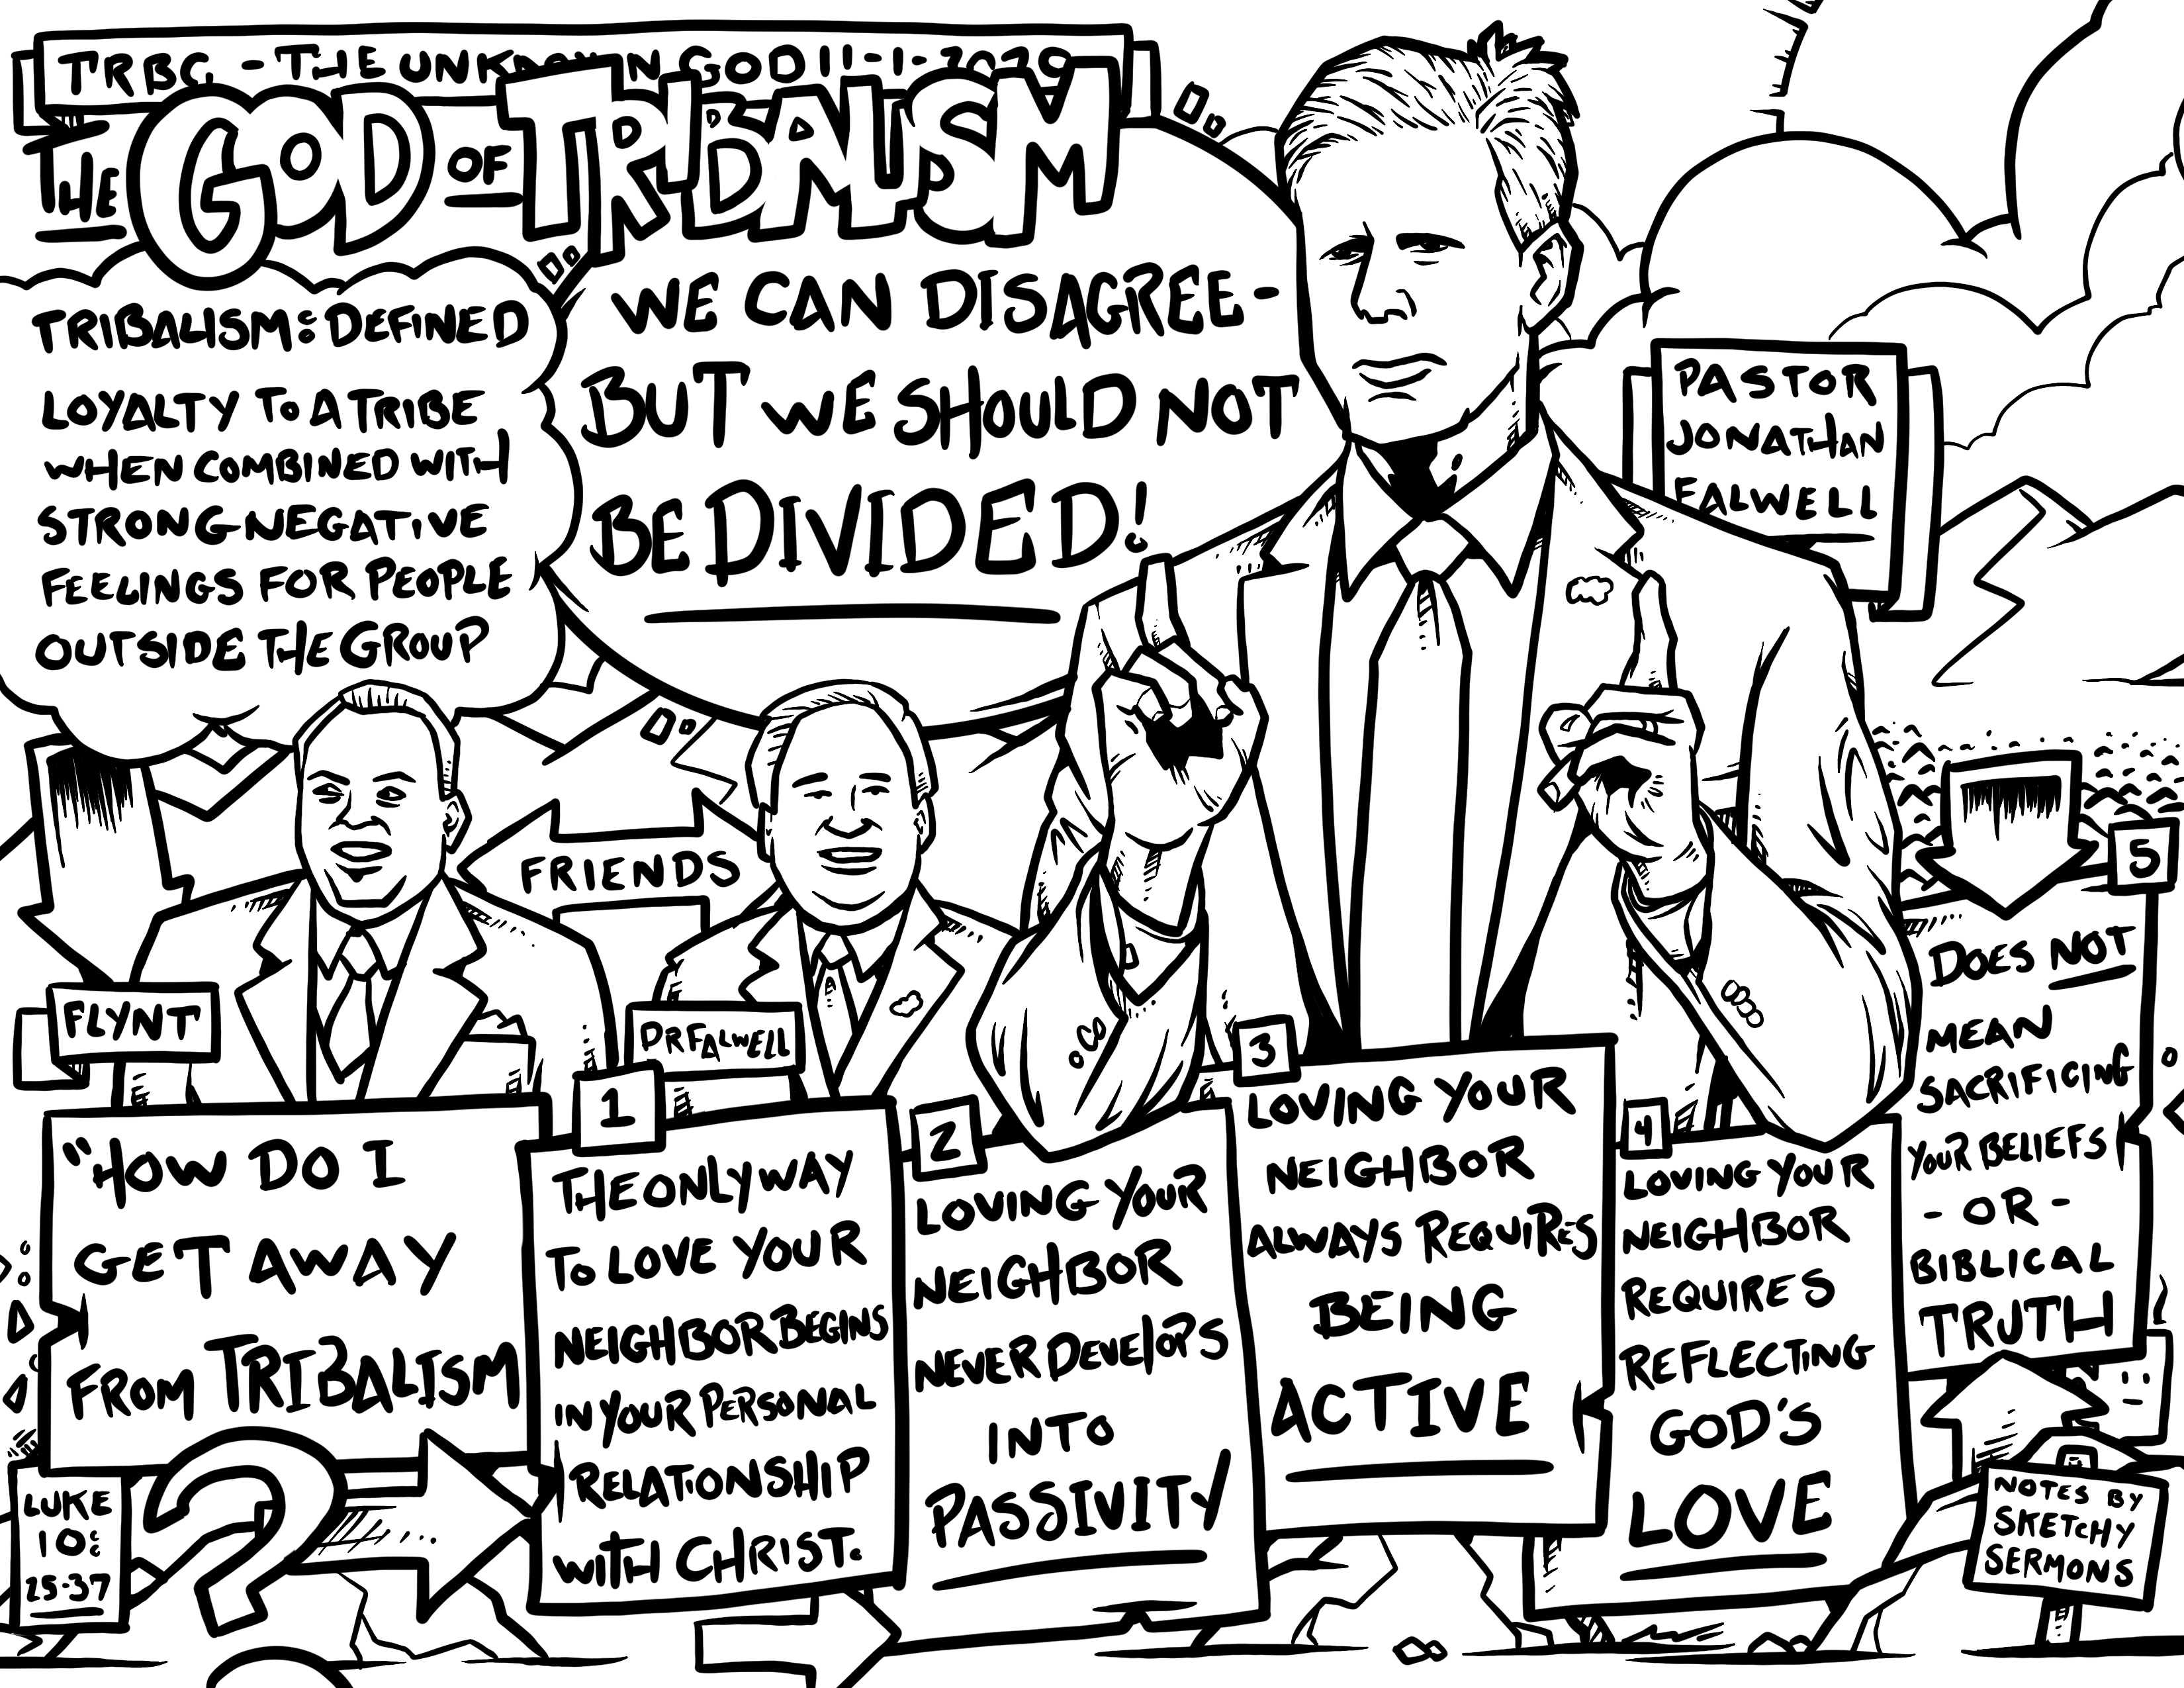 TRBC - THE UNKNOWN GOD 11-1-2020
THE GOD OF TRIBALISM
TRIBALISM: DEFINED
LOYALTY TO A TRIBE
WHEN COMBINED WITH
STRONG NEGATIVE
FEELINGS FOR PEOPLE
OUTSIDE THE GROUP
WE CAN DISAGREE -
BUT WE SHOULD NOT
BE DIVIDED!
PASTOR
JONATHAN
FALWELL
FLYNT
FRIENDS
DR FALWELL
"HOW DO I
GET AWAY
FROM TRIBALISM
?
LUKE
10:
25-37
1
THE ONLY WAY
TO LOVE YOUR
NEIGHBOR BEGINS
IN YOUR PERSONAL
RELATIONSHIP
WITH CHRIST.
2
LOVING YOUR
NEIGHBOR
NEVER DEVELOPS
INTO
PASSIVITY
3
LOVING YOUR
NEIGHBOR
ALWAYS REQUIRES
BEING
ACTIVE
4
LOVING YOUR
NEIGHBOR
REQUIRES
REFLECTING
GOD'S
LOVE
5
DOES NOT
MEAN
SACRIFICING
YOUR BELIEFS
- OR -
BIBLICAL
TRUTH
NOTES BY
SKETCHY
SERMONS